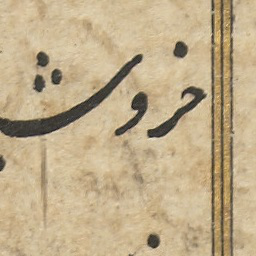 خروش